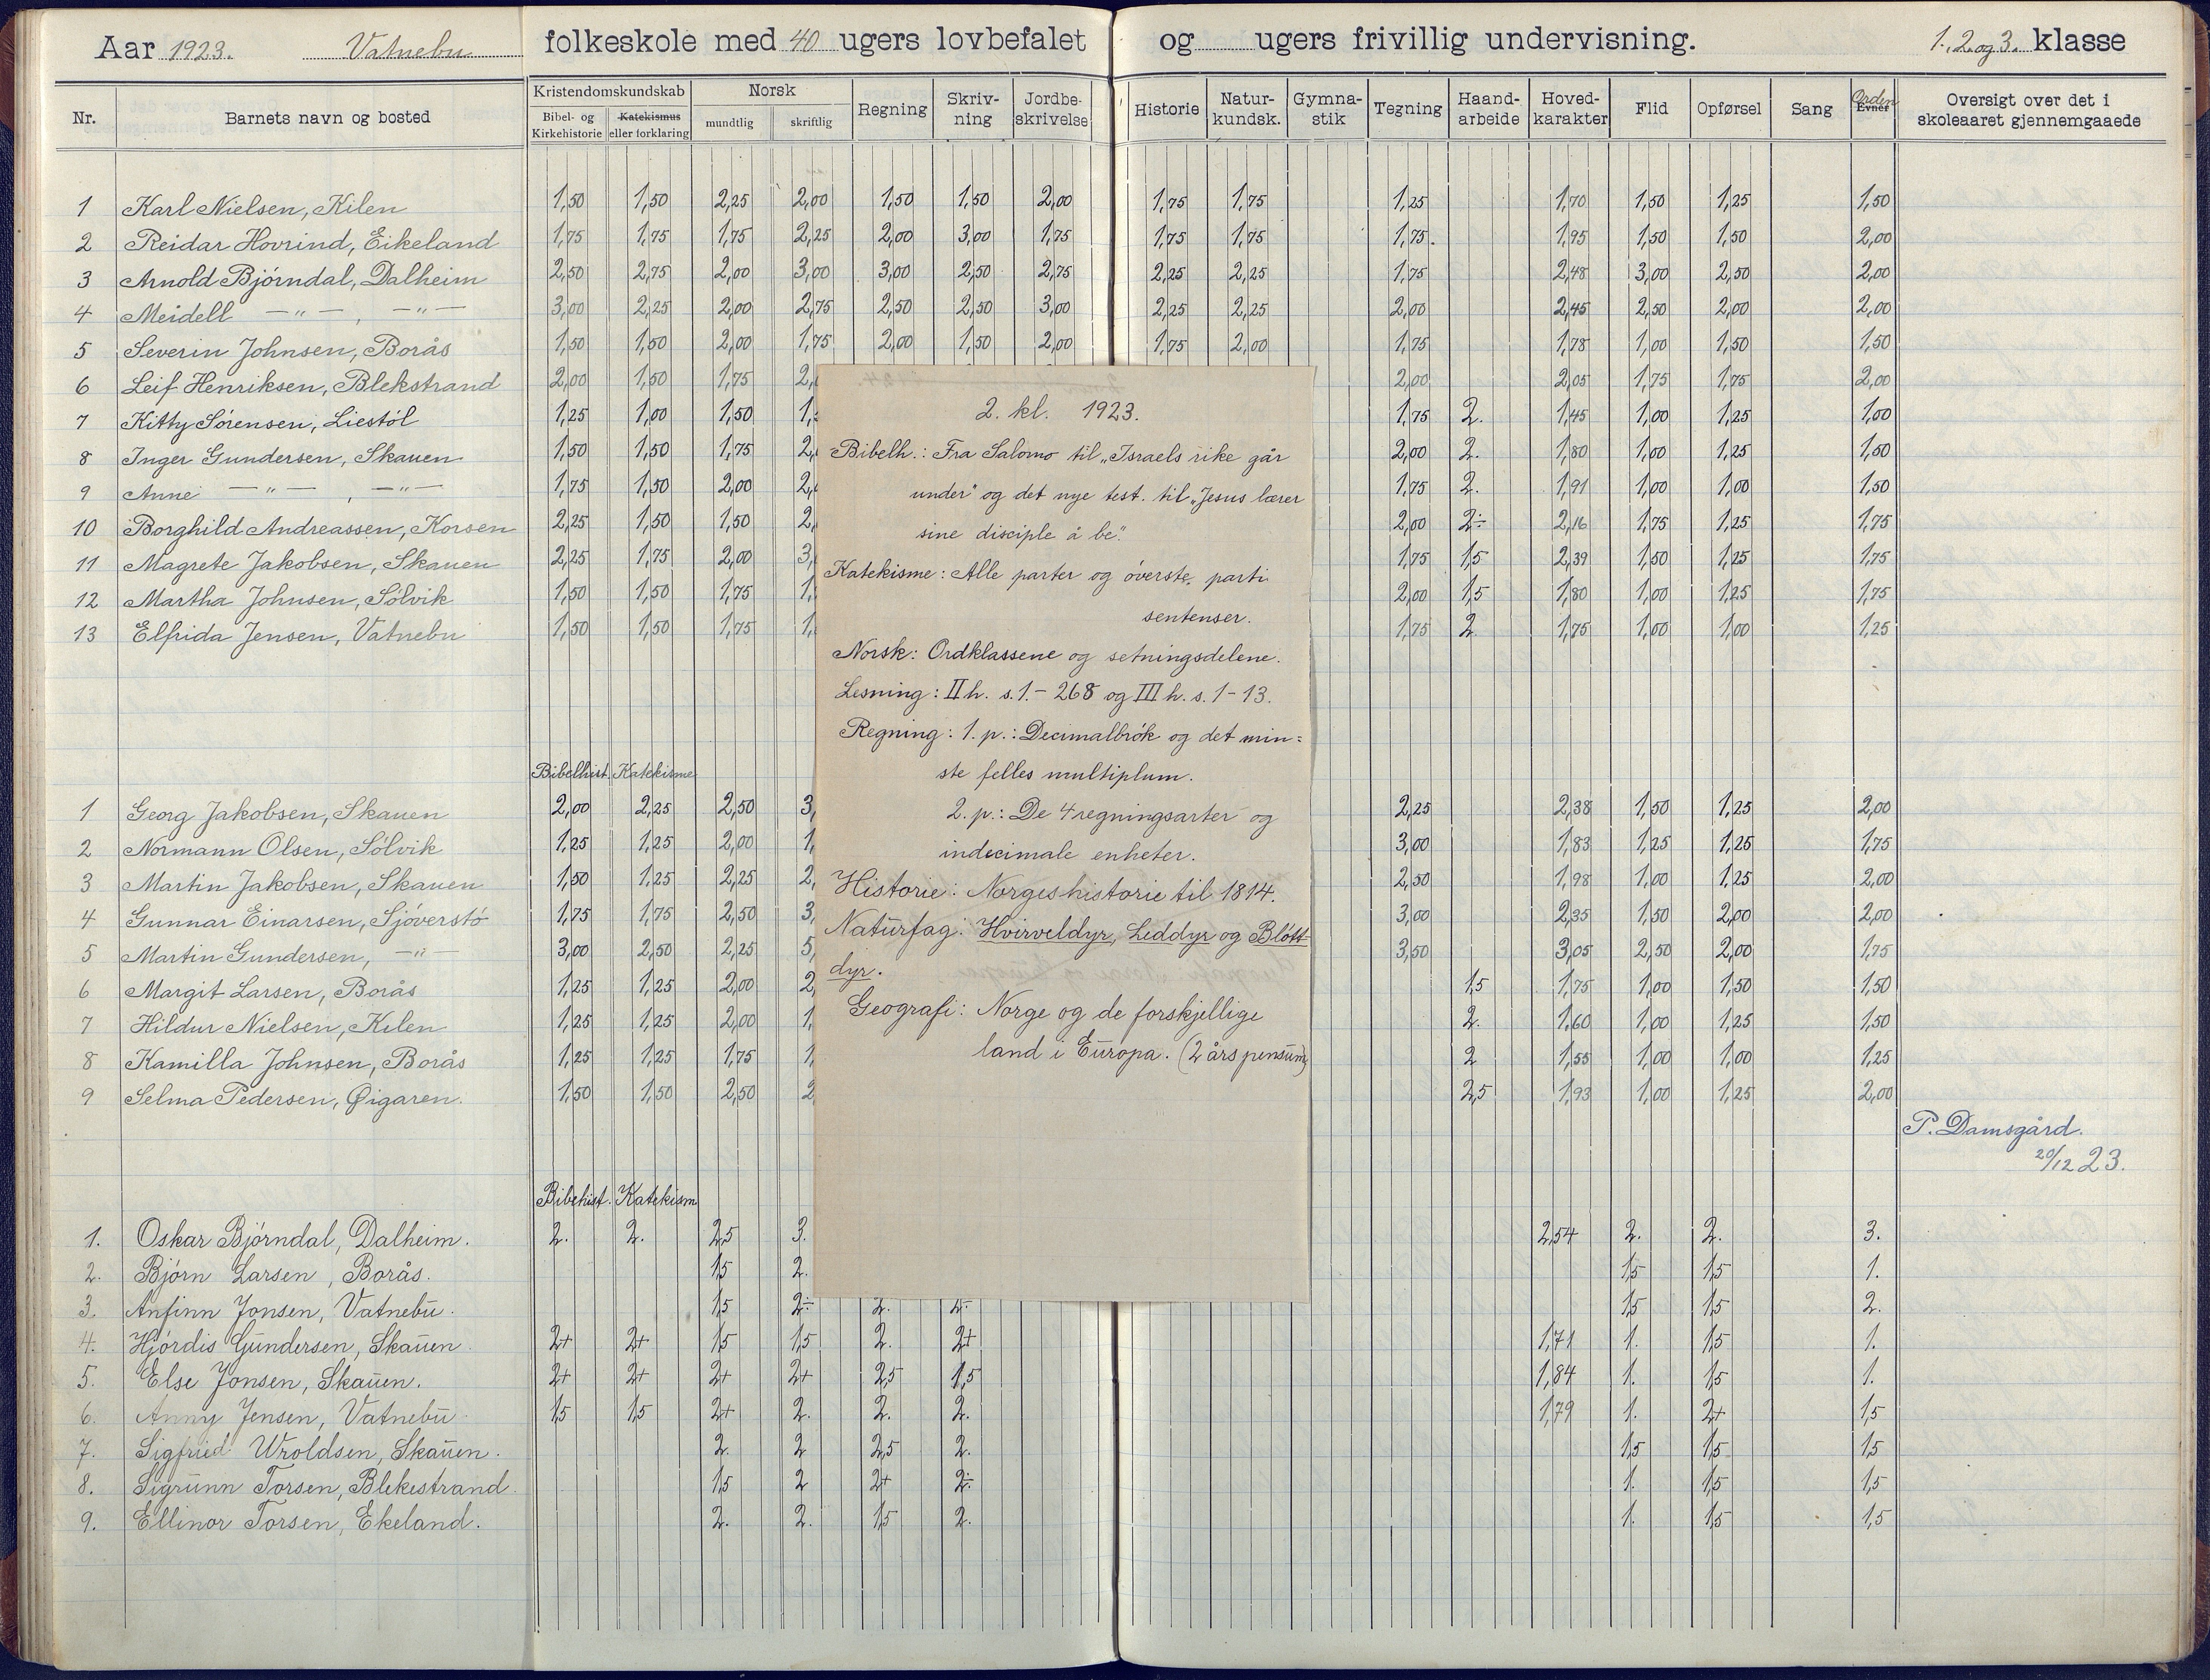 Aar 1923. Vatnebu folkeskole med 40 ugers lovbefalet og ugers frivillig undervisning. 1. 2. og 3. klasse
Nr. Barnets navn og bosted Kristendomskundskab Bibel- og Kirkehistorie Katekismus eller forklaring Norsk mundtlig skriftlig Regning Skriv-ning Jordbe-skrivelse Historie Natur-kundsk. Gymna-stik Tegning Haand-arbeide Hoved-karakter Flid Opførsel Sang Evner Orden Oversigt over det i skoleaaret gjennemgaaede
1 Karl Nielsen, Kilen 1,50 1,50 2,25 2,00 1,50 1,50 2,00 1,75 1,75 1,25 1,70 1,50 1,25 1,50
2 Reidar Hovrind, Eikeland 1,75 1,75 1,75 2,25 2,00 3,00 1,75 1,75 1,75 1,75. 1,95 1,50 1,50 2,00
3 Arnold Bjørndal, Dalheim 2,50 2,75 2,00 3,00 3,00 2,50 2,75 2,25 2,25 1,75 2,48 3,00 2,50 2,00
4 Meidell — " — , — " — 3,00 2,25 2,00 2,75 2,50 2,50 3,00 2,25 2,25 2,00 2,45 2,50 2,00 2,00
5 Severin Johnsen, Borås 1,50 1,50 2,00 1,75 2,00 1,50 2,00 1,75 2,00 1,75 1,78 1,00 1,50 1,50
6 Leif Henriksen, Blekstrand 2,00 1,50 1,75 2, 2,00 2,05 1,75 1,75 2,00
7 Kitty Sørensen, Liestøl 1,25 1,00 1,50 1, 1,75 2. 1,45 1,00 1,25 1,00
8 Inger Gundersen, Skauen 1,50 1,50 1,75 2, 2,00 2. 1,80 1,00 1,25 1,50
9 Anne — " — , — " — 1,75 1,50 2,00 2, 1,75 2. 1,91 1,00 1,00 1,50
10 Borghild Andreassen, Korsen 2,25 1,50 1,50 2, 2,00 2÷ 2,16 1,75 1,25 1,75
11 Magrete Jakobsen, Skauen 2,25 1,75 2,00 3, 1,75 1,5 2,39 1,50 1,25 1,75
12 Martha Johnsen, Sølvik 1,50 1,50 1,75 1, 2,00 1,5 1,80 1,00 1,25 1,75
13 Elfrida Jensen, Vatnebu 1,50 1,50 1,75 1, 1,75 2 1,75 1,00 1,00 1,25
Bibelhist. Katekisme
1 Georg Jakobsen, Skauen 2,00 2,25 2,50 3, 2,25 2,38 1,50 1,25 2,00
2 Normann Olsen, Sølvik 1,25 1,25 2,00 1, 3,00 1,83 1,25 1,25 1,75
3 Martin Jakobsen, Skauen 1,50 1,25 2,25 2, 2,50 1,98 1,00 1,25 2,00
4 Gunnar Einarsen, Sjøverstø 1,75 1,75 2,50 3, 3,00 2,35 1,50 2,00 2,00
5 Martin Gundersen, — " — 3,00 2,50 2,25 5, 3,50 3,05 2,50 2,00 1,75
6 Margit Larsen, Borås 1,25 1,25 2,00 2, 1,5 1,75 1,00 1,50 1,50
7 Hildur Nielsen, Kilen 1,25 1,25 2,00 1, 2. 1,60 1,00 1,25 1,50
8 Kamilla Johnsen, Borås 1,25 1,25 1,75 1, 2 1,55 1,00 1,00 1,25
9 Selma Pedersen, Øigaren. 1,50 1,50 2,50 2, 2,5 1,93 1,00 1,25 2,00
P. Damsgård.
20/12 23.
Bibelhist. Katekism
1. Oskar Bjørndal, Dalheim. 2. 2. 2,5 3. 2,54 2. 2. 3.
2. Bjørn Larsen, Borås. 1,5 2. 1,5 1,5 1.
3. Anfinn Jonsen, Vatnebu. 1,5 2÷ 2. 2. 1,5 1,5 2.
4. Hjørdis Gundersen, Skauen. 2+ 2+ 1,5 1,5 2. 2+ 1,71 1. 1,5 1.
5. Else Jonsen, Skauen. 2+ 2+ 2+ 2+ 2,5 1,5 1,84 1. 1,5 1.
6. Anny Jensen, Vatnebu 1,5 1,5 2+ 2. 2. 2. 1,79 1. 2+ 1,5
7. Sigfried Wroldsen, Skauen. 2. 2 2,5 2. 1,5 1,5 1,5
8. Sigrunn Torsen, Blekestrand. 1,5 2 2+ 2÷ 1. 1,5 1,5
9. Ellinor Torsen, Ekeland. 2. 2. 1,5 2. 1. 1,5 1,5
2. kl. 1923.
Bibelh.: Fra Salomo til „Israels rike går
under" og det nye test. til „Jesus lærer
sine disciple å be".
Katekisme: Alle parter og øverste parti
sentenser.
Norsk: Ordklassene og setningsdelene.
Lesning: II h. s. 1.- 268 og III h. s. 1-13.
Regning: 1. p.: Decimalbrøk og det min=
ste felles multiplum.
2. p.: De 4 regningsarter og
indecimale enheter.
Historie: Norgeshistorie til 1814.
Naturfag: Hvirveldyr, Leddyr og Bløtt-
dyr.
Geografi: Norge og de forskjellige
land i Europa. (2 års pensum)